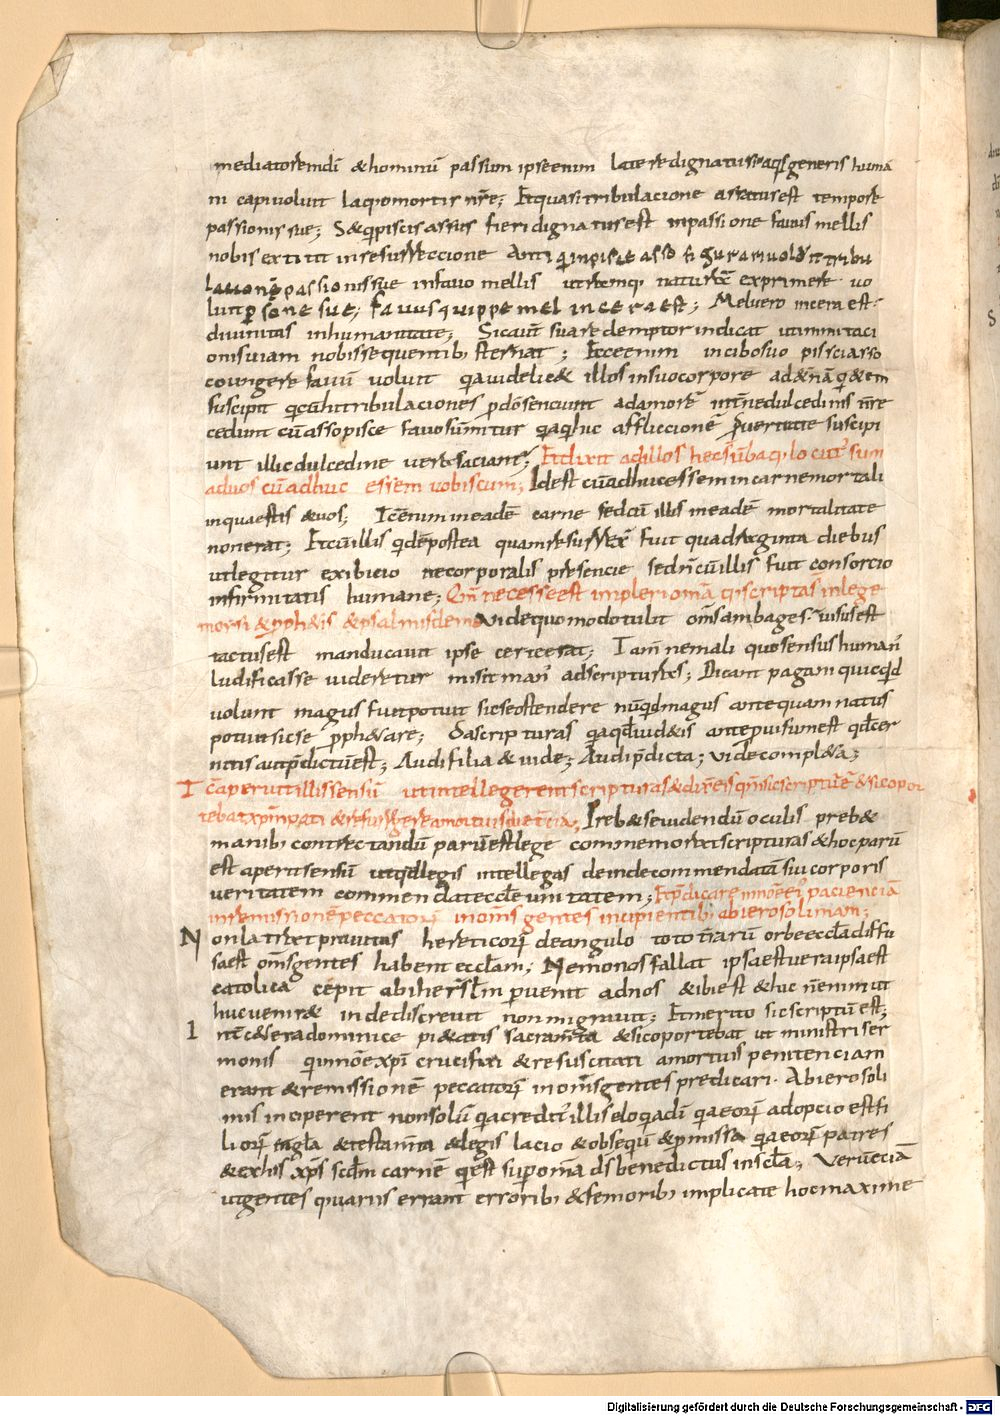 mediatorem dī & hominū passum ipse enim latere dignatus ē aq̄s generis humā
ni capi voluit laq̇o mortis nr̄e; Et quasi tribulacione assatus est tempore
passionis sue; S& q̇ piscis assus fieri dignatus est in passione favus mellis
nobis extitit in resurreccione An q̇ in pisce asso figurari voluit tribu
lationē passionis sue in favo mellis utramq; naturā exprimere vo
luit p̱sone sue; favus quippe mel in cera est; Mel vero in cera est
divinitas in humanitate; Sicaut̄ sua redemptor indicat ut imitaci
onis viam nobis sequentib; sternat; Ecce enim in cibo suo pisci asso
coiungere favū voluit q̇a videlic& illos in suo corpore ad &nā q̇&em
suscipit q̇ cū hic tribulaciones p̱ dō senciunt ad amorē int̄ne dulcedinis n̄re
cedunt cū asso pisce favo sūmitur q̇a q̇ hic affliccionē p̱ veritate suscipi
unt illic dulcedine vera saciant̄; Et dixit ad illos hec sūt v̄ba q̇ locut̄ sum
ad vos cū adhuc essem vobiscum; Id est cū adhuc essem in carne mortali
in qua estis & vos; Tc̄ enim in eadē carne sed cū illis in eadē mortalitate
non erat; Et cū illis q̇dē postea quam resurrex̄ fuit quadraginta diebus
ut legitur exibicio ne corporalis presencie sed n̄ cū illis fuit consorcio
infirmitatis humane; Qm̄ necesse est impleri omā q̇ scripta s̄ in lege
moisi & pph&is & psalmis de me Vide quomodo tulit om̄s ambages visus est
tactus est manducavit ipse certe erat; Tam̄ ne mali quo sensus humani
ludificasse videretur misit man̄ ad scripturas; Dicant pagani quicq̇d
volunt magus fuit potuit sic se ostendere nūq̇d magus antequam natus
potuit sic se pph&are; Da scripturas q̇a q̇d vid&is ante p̱visum est q̇d cer
nitis ante p̄dictū est; Audi filia & vide; Audi p̄dicta; vide compl&a;
Tc̄ aperuit illis sensū ut intellegerent scripturas & dix̄ eis qm̄ sic scriptū ē & sic opor
tebat xp̄m pati & resurgere a mortuis die t̄cia; Preb& se videndū oculis preb&
manib; contrectandū parū est lege commemorat scripturas & hoc parū
est aperit sensū ut q̇d legis intellegas deinde commendata sui corporis
veritatem commendat eccl̄e unitatem; Et p̄dicare in noīe ei; pacienciā
in remissionē peccatorū in om̄s gentes incipientib; ab ierosolimam;
Non latret pravitas hereticorū de angulo toto t̄rarū orbe eccl̄a diffu
sa est om̄s gentes habent eccl̄am; Nemo nos fallat ipsa est vera ipsa est
catolica cepit ab iher̄slm̄ p̱venit ad nos & ibi est & huc n̄ enim ut
huc venir& inde discrevit non migravit; Et merito sic scriptū est;
Int̄ c&era dominice pi&atis sacram̄ta & sic oportebat ut ministri ser
monis q̇ in noīe xp̄i crucifixi & resuscitati a mortuis penitenciam
erant & remissionē peccatorū in om̄s gentes predicari. Ab ierosoli
mis inciperent non solū q̇a credit; illis eloq̇a dī q̇a eorū adopcio est fi
liorū & gl̄a & testam̄ta & legis lacio & obsequiū & p̱missa q̇a eorū patres
& ex his xp̄s scdm̄ carnē q̇ est sup̱ omā ds̄ benedictus in scl̄a; Verū eciā
ut gentes quariis errant errorib; & femorib; implicate hoc maxime
Digitalisierung gefördert durch die Deutsche Forschungsgemeinschaft - DFG